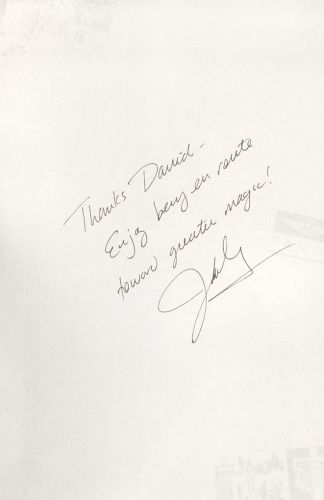 Thanks David -
Enjoy being en route
toward greater magic!